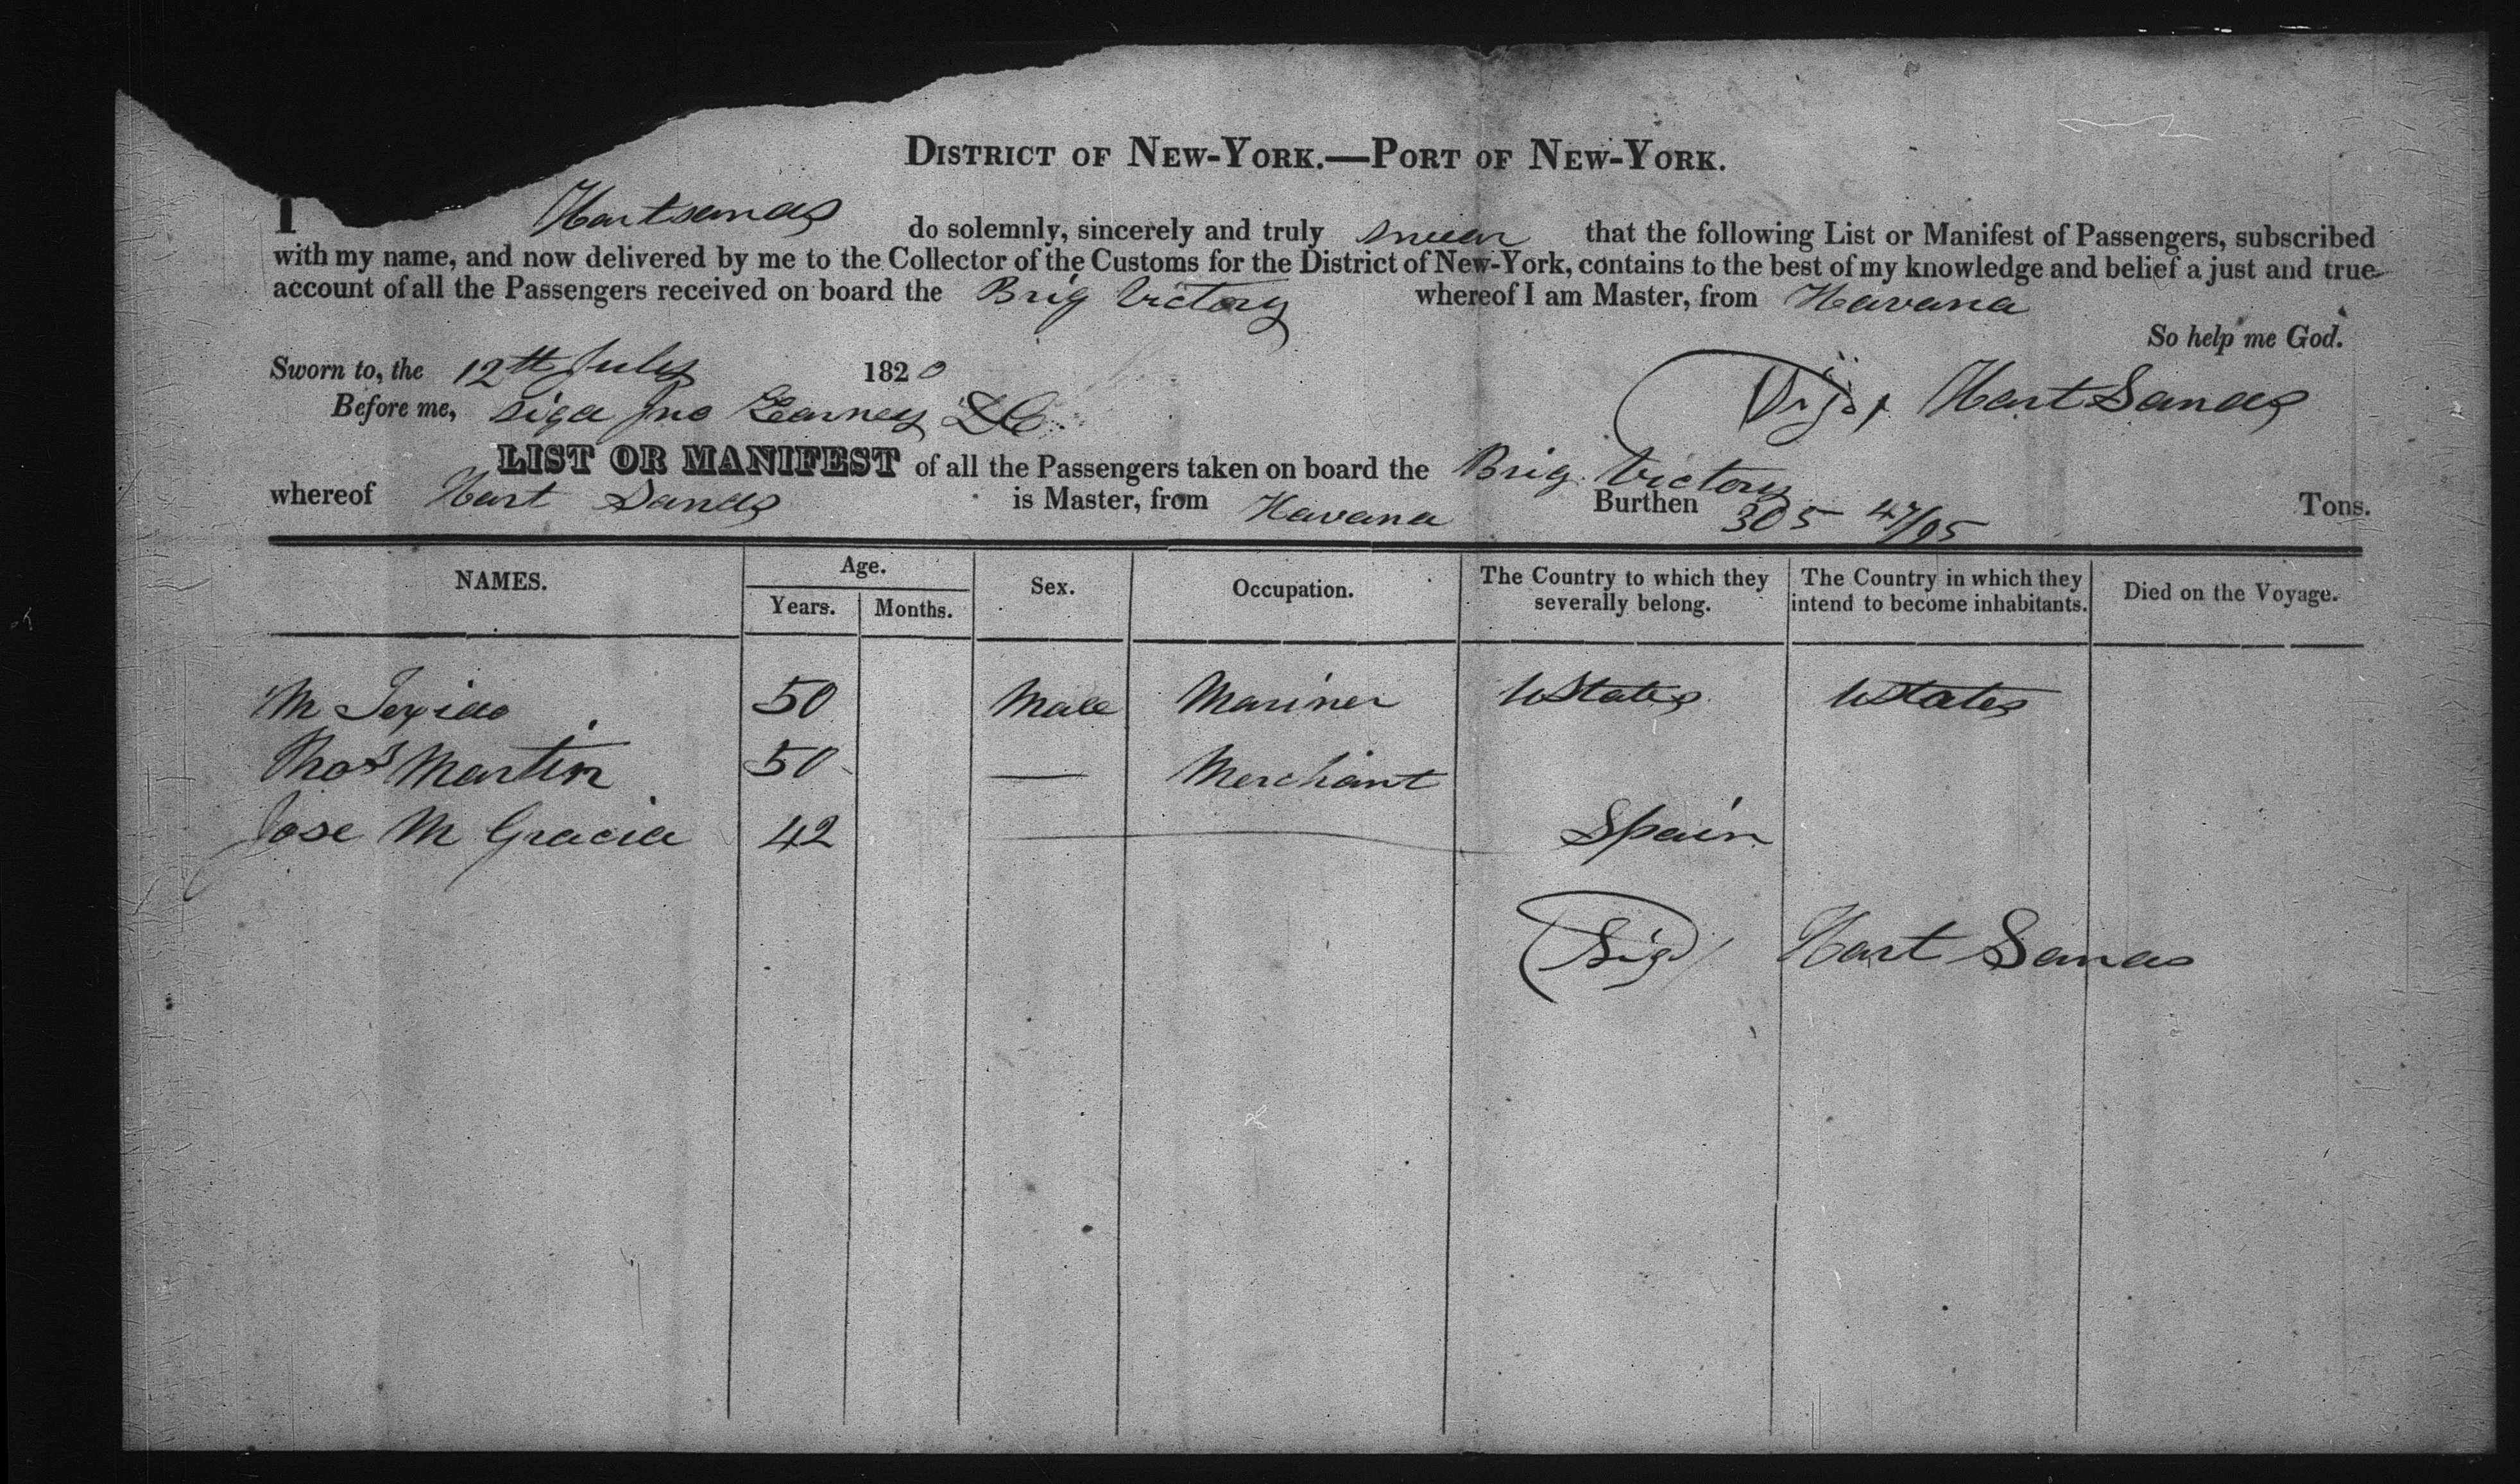 DISTRICT OF NEW-YORK.—PORT OF NEW-YORK.
I Hart Sands do solemnly, sincerely and truly swear that the following List or Manifest of Passengers, subscribed
with my name, and now delivered by me to the Collector of the Customs for the District of New-York, contains to the best of my knowledge and belief a just and true
account of all the Passengers received on board the Brig Victory whereof I am Master, from Havana
So help me God.
Sworn to, the 12th July 1820
Before me, Sigd Jno DC
Hart Sands
LIST OR MANIFEST of all the Passengers taken on board the Brig Victory
whereof Hart Sands is Master, from Havana Burthen 305 47/95 Tons.
NAMES. Age. Years. Months. Sex. Occupation. The Country to which they severally belong. The Country in which they intend to become inhabitants. Died on the Voyage.
M 50 Male Mariner UStates UStates
Thos Martin 50 — Merchant
Jose M Gracia 42 — Spain
(Sigd) Hart Sands